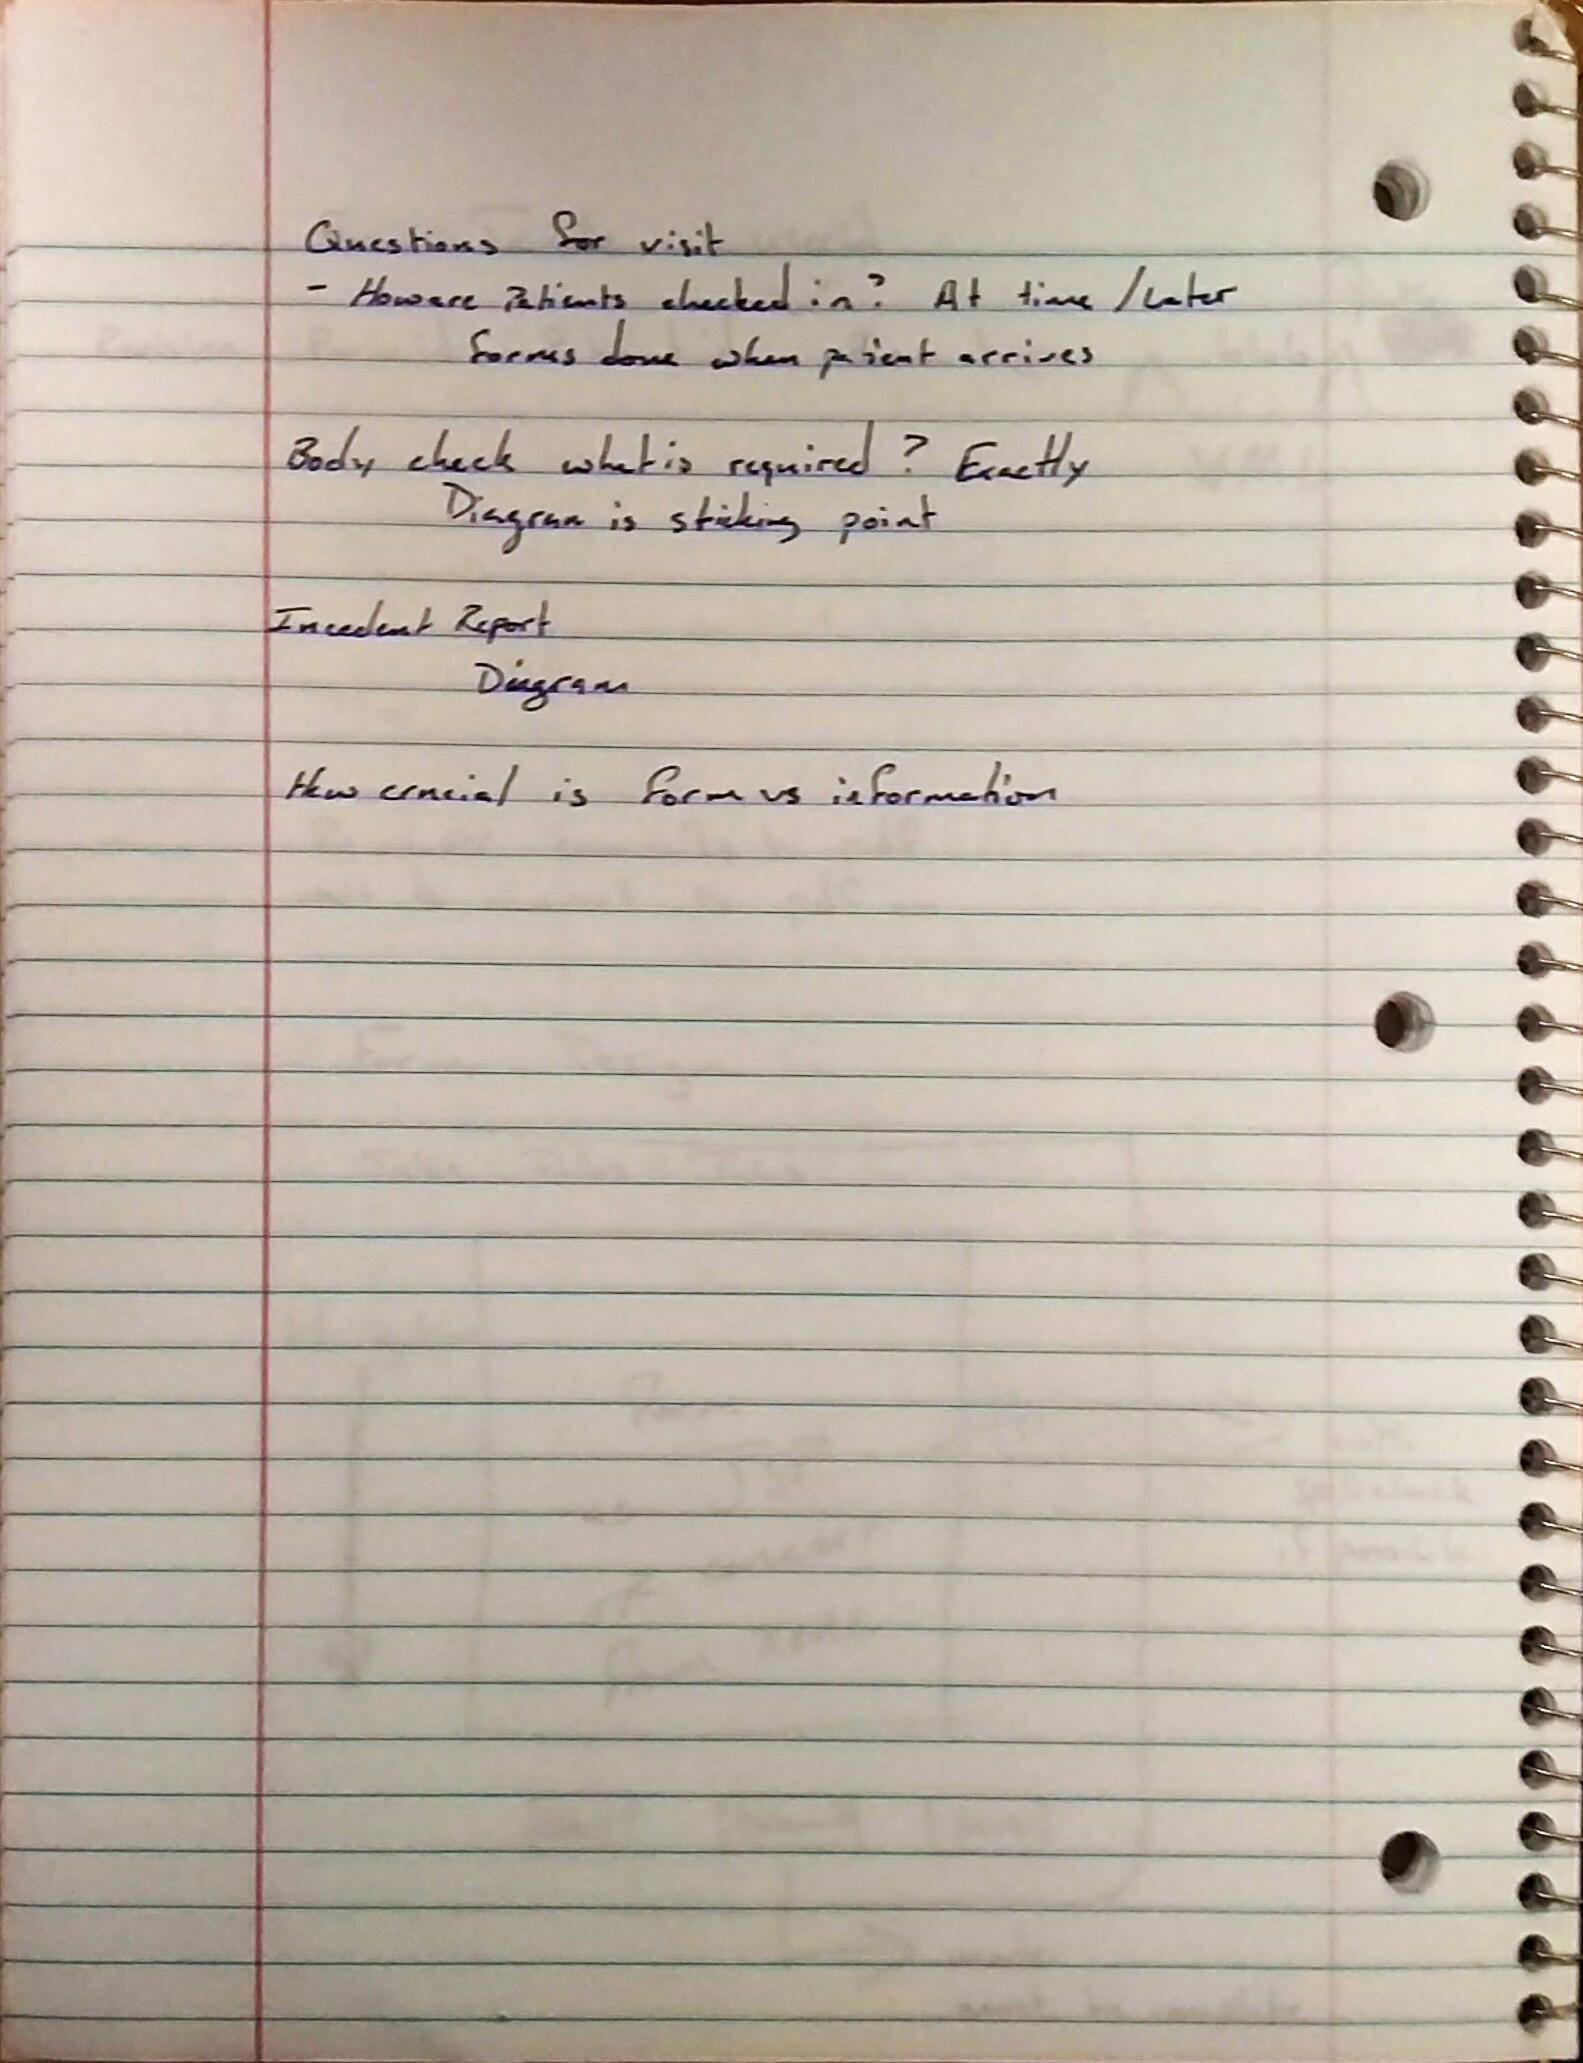 Questions for visit
- How are Patients checked in? At time / Later
forms done when patient arrives
Body check what is required? Exactly
Diagram is sticking point
Incedent Report
Diagram
How crucial is form vs information